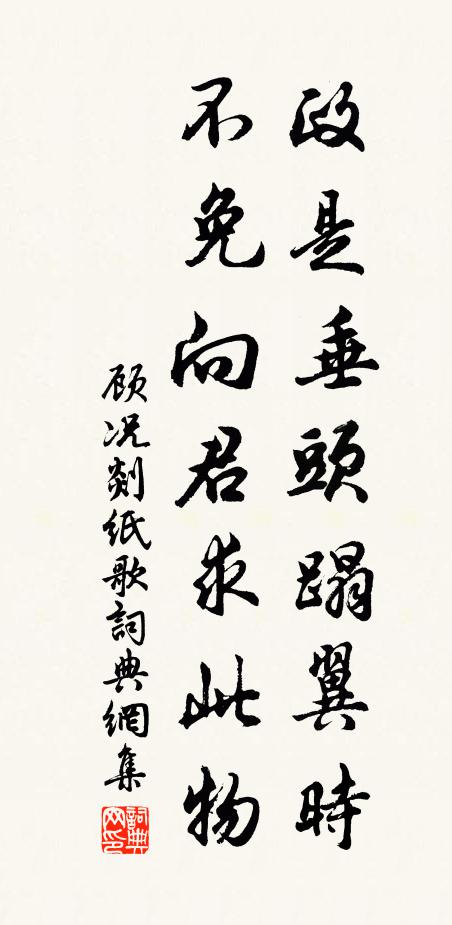 政是垂頭蹋翼時
不免向君求此物
顾况剡紙歌詞典網集
詞典网印